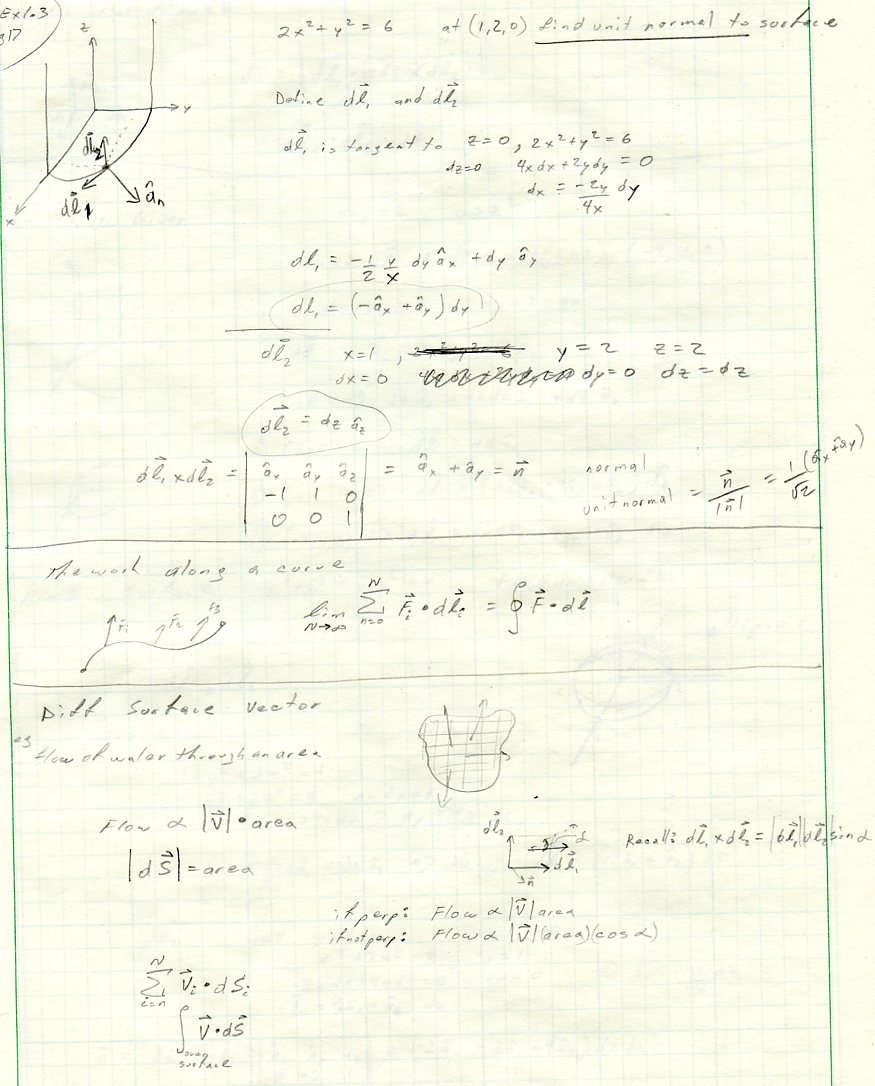 Ex1.3
g17
2x² + y² = 6 at (1,2,0) find unit normal to surface
z
y
x
dl⃗₂
dl⃗₁
âₙ
Define dl⃗₁ and dl⃗₂
dl⃗₁ is tangent to z=0, 2x²+y²=6
dz=0 4xdx+2ydy=0
dx = -2y/4x dy
dl₁ = -1/2 y/x dy âₓ + dy â_y
dl₁ = (-âₓ + â_y) dy
dl⃗₂ x=1, y=2 z=2
dx=0 dy=0 dz=dz
dl⃗₂ = dz â_z
dl⃗₁ x dl⃗₂ = | âₓ â_y â_z | = âₓ + â_y = n⃗ normal
-1 1 0
0 0 1
unit normal = n⃗/|n⃗| = 1/√2 (âₓ+â_y)
The work along a curve
F⃗₁ F⃗₂ F⃗3
lim N→∞ Σ n=0 N F⃗ᵢ • dl⃗ᵢ = ∮ F⃗ • dl⃗
Diff Surface Vector
eg
flow of water through an area
Flow α |V⃗| • area
|dS⃗| = area
dl⃗₂
α
dl⃗₁
n⃗
Recall: dl⃗₁ x dl⃗₂ = |dl⃗₁||dl⃗₂| sin α
if perp: Flow α |V⃗| area
if not perp: Flow α |V⃗| (area)(cos α)
Σ i=n N V⃗ᵢ • dSᵢ
∫ V⃗ • dS⃗
over
surface